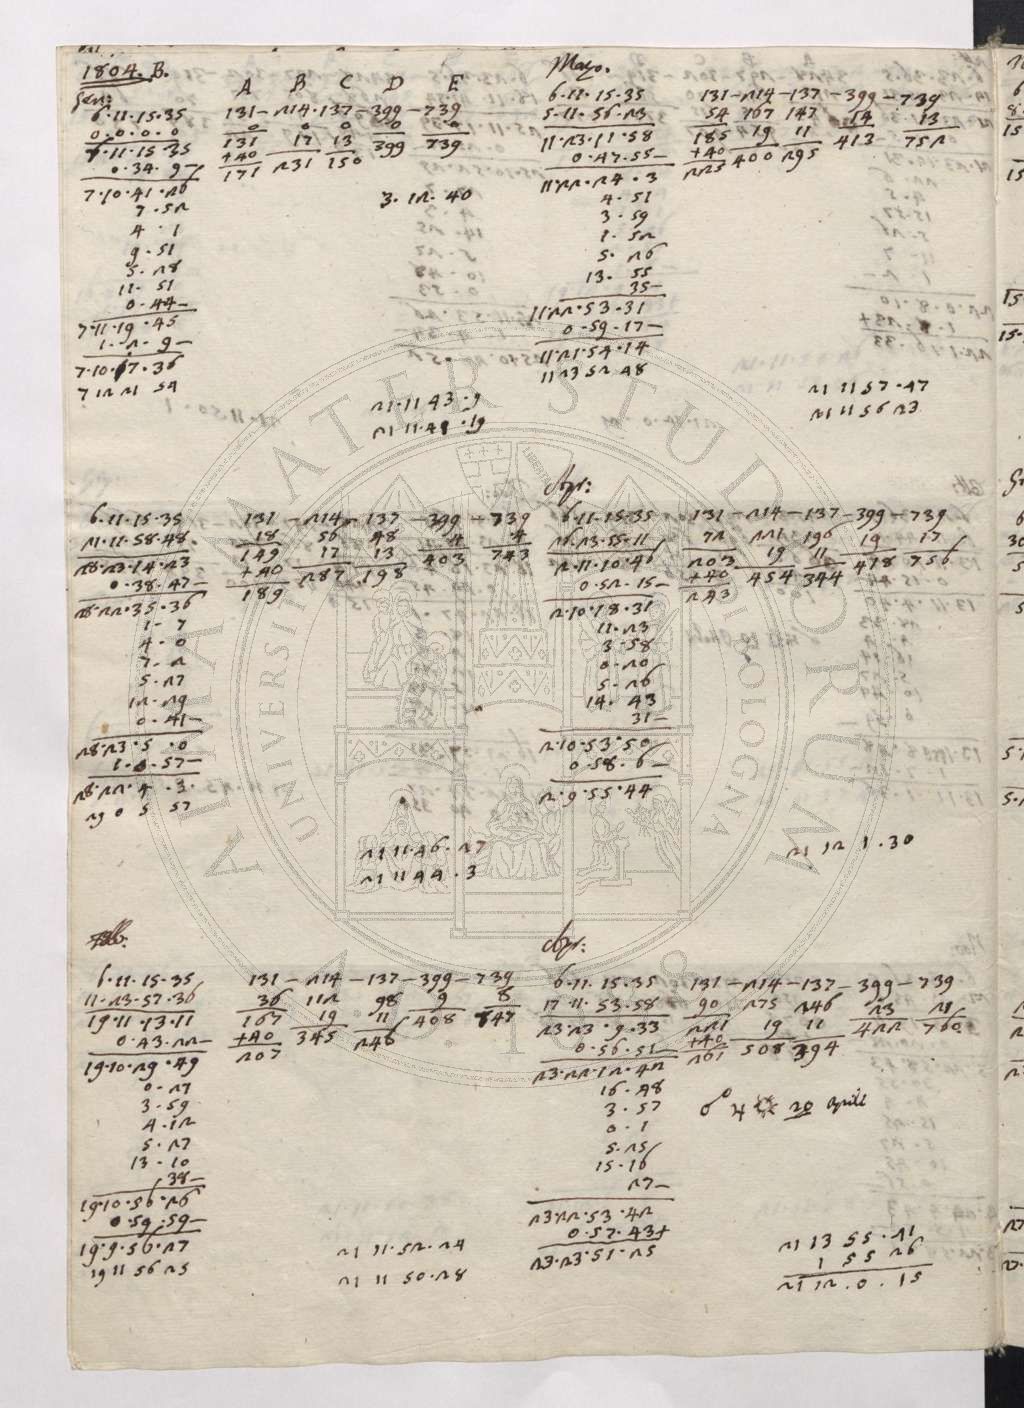 1804. B.
A B C D E
Gen:
6.11.15.35 131-214.137-399-739
0.0.0.0 0 0 0 0 0
6.11.15 35 131 17 13 399 739
0.34.9- +40 231 150
7.10.41.26 171
7.52 3.12.40
4.1
9.51
5.28
11.51
0.44-
7.11.19.45
1.2.9-
7.10.17.36
7 12 21 54
21.11 43.9
21 11.42.19
6.11.15.35 131-214-137-399-739
21.11.58.48 18 56 48 4 4
28.23.14.23 149 17 13 403 743
0.38.47- +40 287 198
28.22.35.36 189
1-7
4.0
7-2
5.27
12-29
0.41-
28.23.5.0
1.0.57-
28.22.4.3
29 0 5 57
21 11.46.27
21 11 44.3
Feb:
6.11.15.35 131-214-137-399-739
11.23.57.36 36 112 98 9 8
19.11.13.11 167 19 11 408 747
0.43.22- +40 345 246
19.10.29.49 207
0.27
3.59
4.12
5.27
13-10
38-
19.10.56.26
0.59.59-
19.9.56.27
19 11 56 25
21 11.52.24
21 11 50.28
Marzo.
6.11.15.35 131-214-137-399-739
5.11.56.23 54 167 147 14 13
11.23.11.58 185 19 11 413-752
0.47.55- +40 400 295
11.22.24.3 225
4.51
3.59
1.52
5.26
13.55
35-
11.22.53.31
0.59.17-
11.21.54.14
11 23 52 48
21 11 57.47
21 11 56 23
Apr:
6.11.15.35 131-214-137-399-739
72 221 196 19 17
2.11.10.46 203 19 11 418 756
0.52.15- +40 454 344
2.10.18.31 243
11.23
3.58
0.20
5.26
14.43
31-
2.10.53.50
0.58.6-
2.9.55.44
21 12 1.30
Apr:
6.11.15.35 131-214-137-399-739
17 11.53.58 90 275 246 23 21
23.23.9.33 221 19 11 422 760
0.56.51- +40 508 394
23.22.12.42 261
16.48
3.57
0.1
5.25
15.16
27-
23.22.53.42
0.57.43+
23.23.51.25
☍ ♃ 20 Aprile
21 13 55.21
1 55 26
21 12.0.15
ALMA MATER STUDIORUM
UNIVERSITÀ DI BOLOGNA
LIBERTAS
A.D. 1088